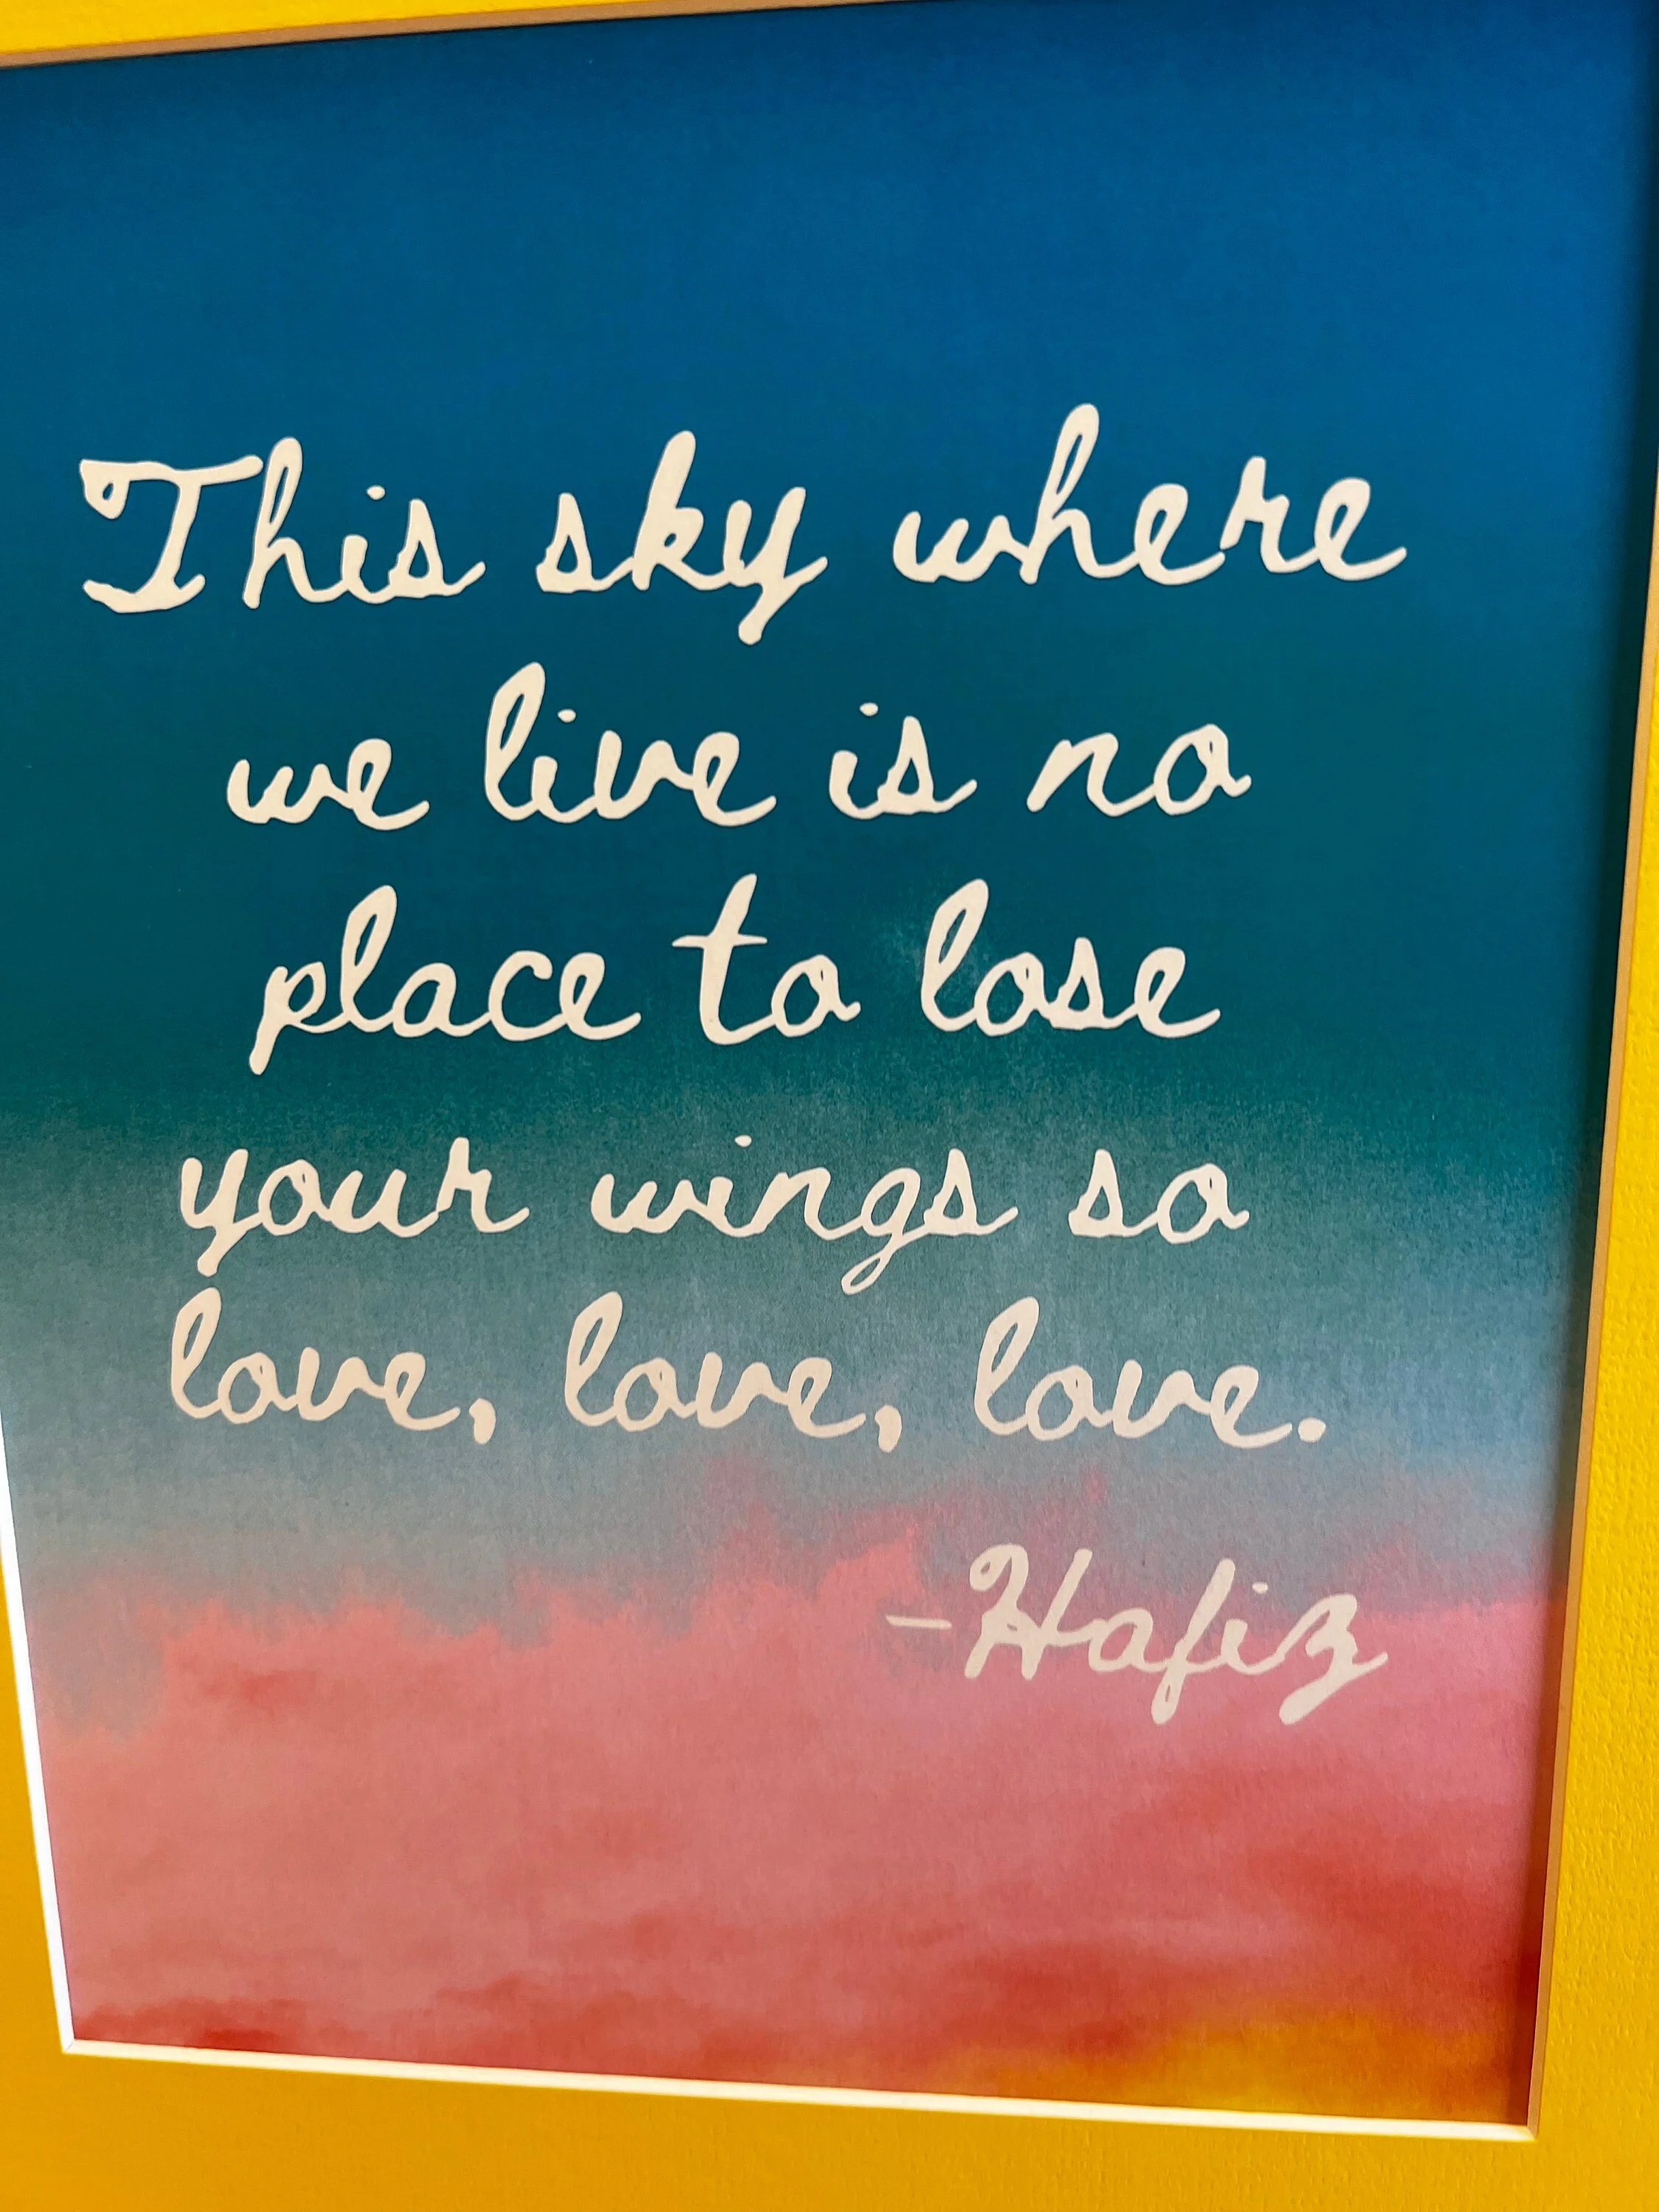 This sky where
we live is no
place to lose
your wings so
love, love, love.
-Hafiz